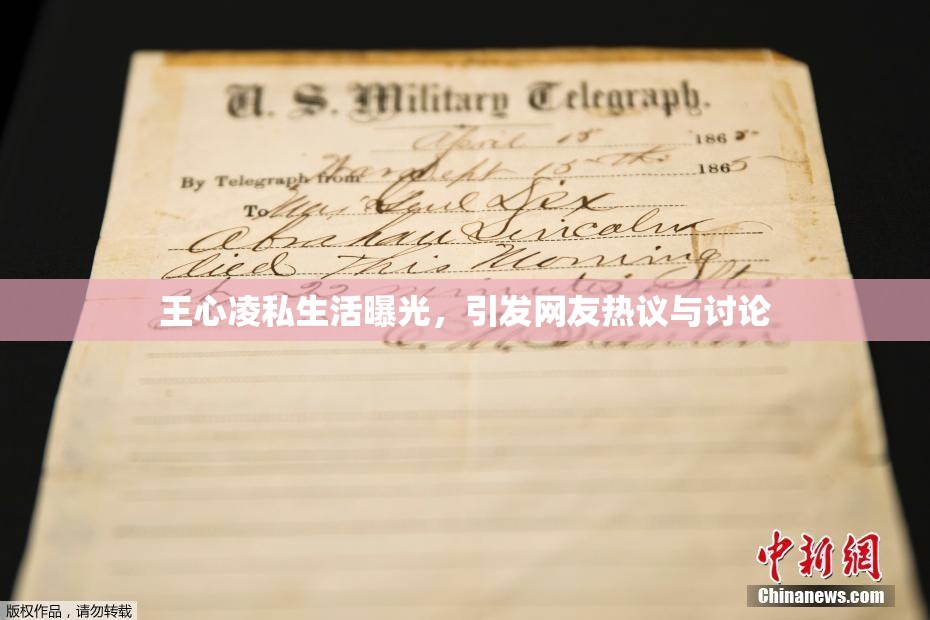 U. S. Military Telegraph.
April 15 1865
By Telegraph from War Dept 15th 1865
To Maj Genl Dix
Abraham Lincoln
died This Morning
22 minutes after
王心凌私生活曝光，引发网友热议与讨论
Stanton
中新網
Chinanews.com
版权作品，请勿转载